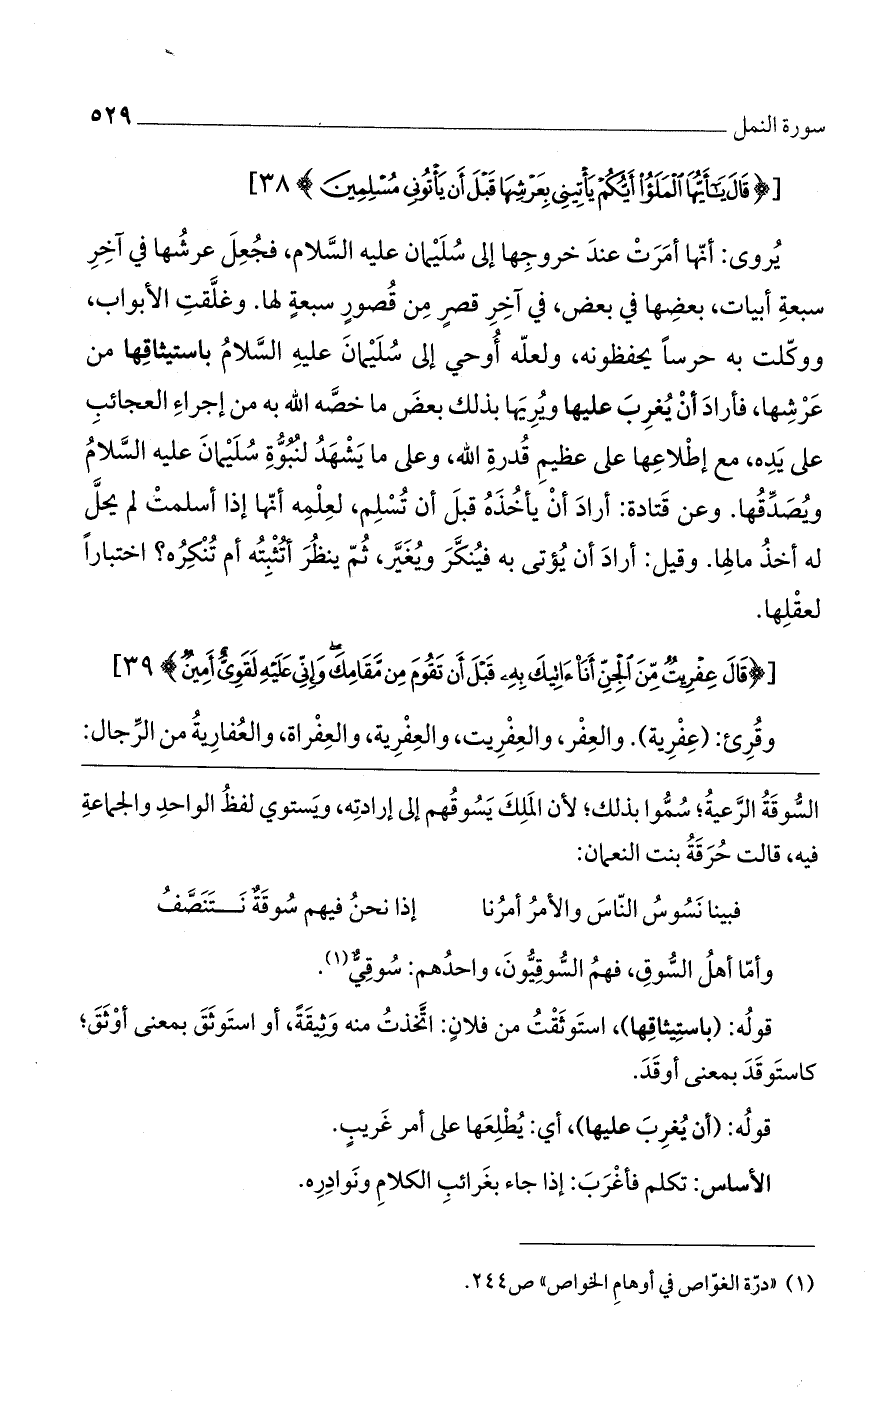 سورة النمل ٥٢٩
[﴿ قَالَ يَٰٓأَيُّهَا ٱلْمَلَؤُا۟ أَيُّكُمْ يَأْتِينِى بِعَرْشِهَا قَبْلَ أَن يَأْتُونِى مُسْلِمِينَ ﴾ ٣٨]
يُروى: أنّها أمَرَتْ عندَ خروجِها إلى سُلَيْمان عليه السَّلام، فجُعِلَ عرشُها في آخِرِ
سبعةِ أبيات، بعضِها في بعض، في آخِرِ قصرٍ مِن قُصورٍ سبعةٍ لها. وغلَّقتِ الأبواب،
ووكّلت به حرساً يحفظونه، ولعلّه أُوحي إلى سُلَيْمانَ عليهِ السَّلامُ باستيثاقِها من
عَرْشِها، فأرادَ أنْ يُغرِبَ عليها ويُريَها بذلك بعضَ ما خصَّه الله به من إجراءِ العجائبِ
على يَدِه، مع إطْلاعِها على عظيمِ قُدرةِ الله، وعلى ما يَشْهَدُ لنُبُوَّةِ سُلَيْمانَ عليه السَّلامُ
ويُصَدِّقُها. وعن قَتادة: أرادَ أنْ يأخُذَهُ قبلَ أن تُسْلِم، لعِلْمِه أنّها إذا أسلمتْ لم يحلَّ
له أخذُ مالِها. وقيل: أرادَ أن يُؤتى به فيُنكَّرَ ويُغَيَّر، ثُمّ ينظُرَ أتُثْبِتُه أم تُنْكِرُه؟ اختباراً
لعقْلِها.
[﴿قَالَ عِفْرِيتٌ مِّنَ ٱلْجِنِّ أَنَا۠ ءَاتِيكَ بِهِۦ قَبْلَ أَن تَقُومَ مِن مَّقَامِكَ ۖ وَإِنِّى عَلَيْهِ لَقَوِىٌّ أَمِينٌ ﴾ ٣٩]
وقُرِئ: (عِفْرِية). والعِفْر، والعِفْرِيت، والعِفْرِية، والعِفْراة، والعُفارِيةُ من الرِّجال:
السُّوقَةُ الرَّعيةُ؛ سُمُّوا بذلك؛ لأن المَلِكَ يَسُوقُهم إلى إرادتِه، ويَستوي لفظُ الواحدِ والجماعةِ
فيه، قالت حُرَقَةُ بنت النعمان:
فبينا نَسُوسُ النّاسَ والأمرُ أمرُنا إذا نحنُ فيهم سُوقَةٌ نَـتَنَصَّفُ
وأمّا أهلُ السُّوقِ، فهمُ السُّوقِيُّونَ، واحدُهم: سُوقِيٌّ(١).
قولُه: (باستِيثاقِها)، استَوثَقْتُ من فلانٍ: اتَّخذتُ منه وَثِيقَةً، أو استَوثَقَ بمعنى أوْثَقَ؛
كاستَوقَدَ بمعنى أوقَدَ.
قولُه: (أن يُغرِبَ عليها)، أي: يُطْلِعَها على أمر غَريبٍ.
الأساس: تكلم فأغْرَبَ: إذا جاء بغَرائبِ الكلامِ ونَوادِرِه.
(١) «درّة الغوّاص في أوهامِ الخواص» ص٢٤٤.